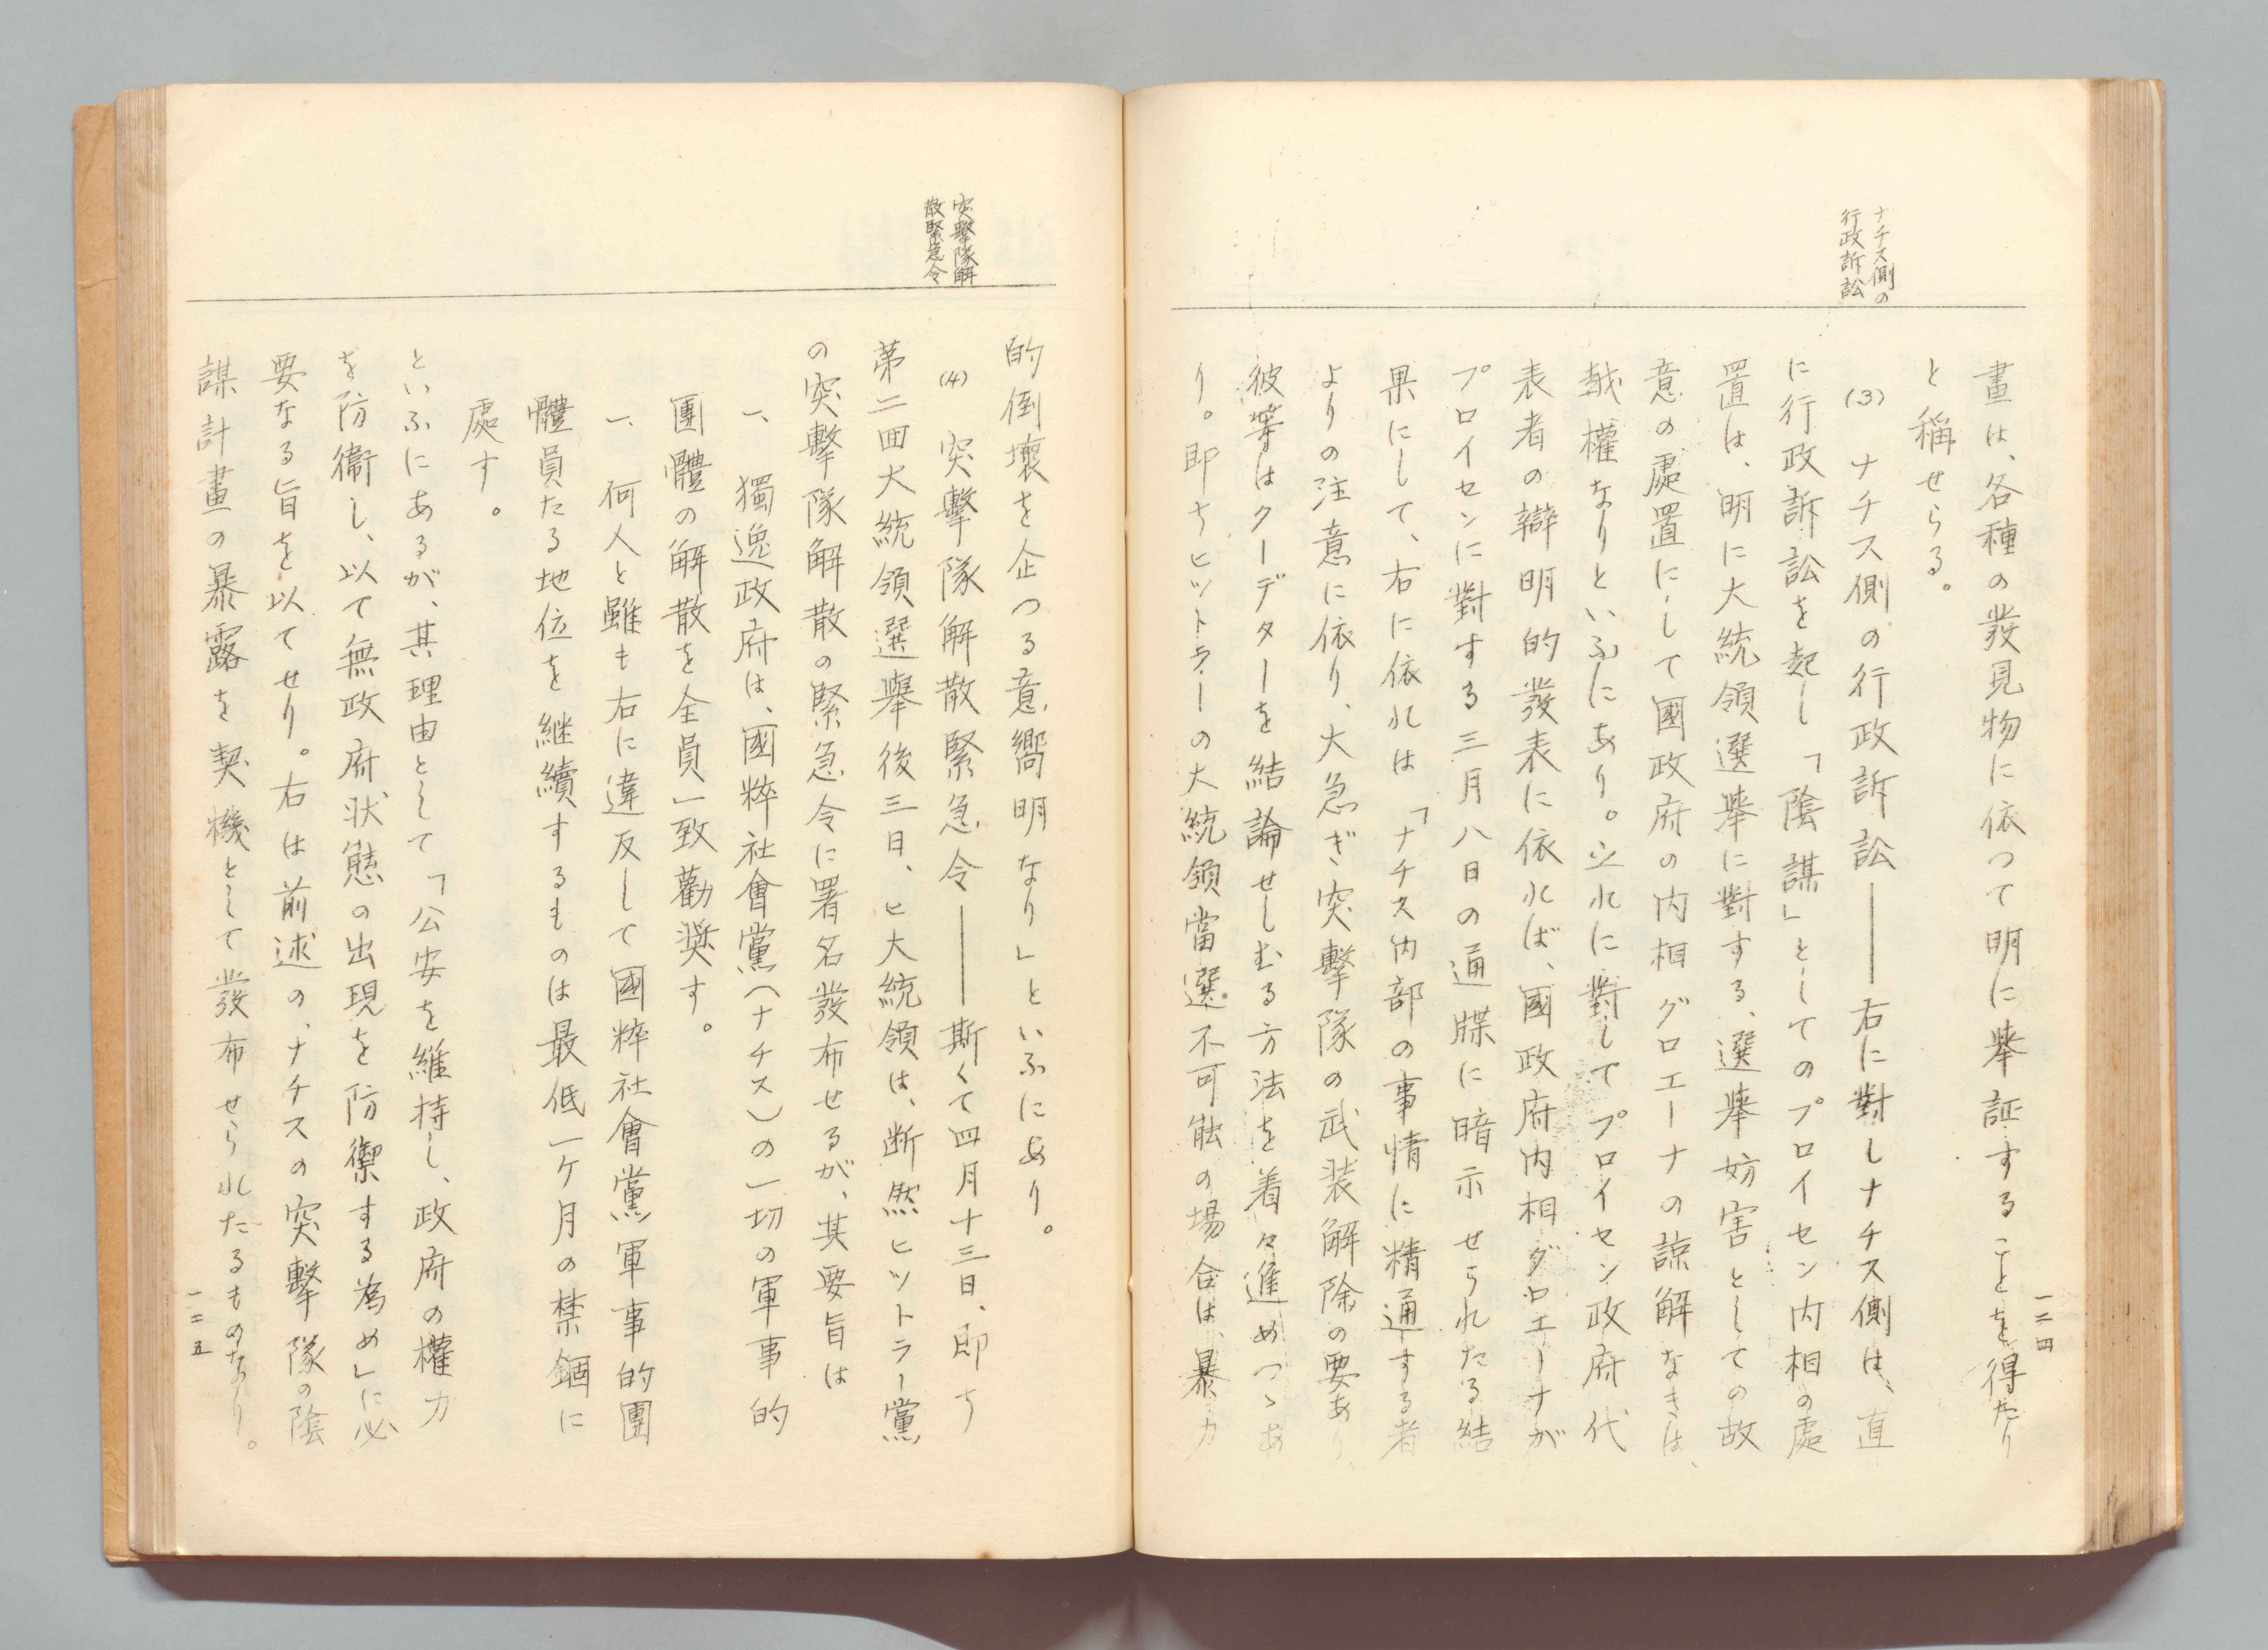 ナチス側の
行政訴訟
一二四
畫は、各種の發見物に依つて明に擧証することを得たり
と稱せらる。
(3) ナチス側の行政訴訟――右に對しナチス側は、直
に行政訴訟を起し「陰謀」としてのプロイセン内相の處
置は、明に大統領選擧に對する、選擧妨害としての故
意の處置にして國政府の内相グロエーナの諒解なきは、
越權なりといふにあり。之れに對してプロイセン政府代
表者の辯明的發表に依れば、國政府内相グロエーナが
プロイセンに對する三月八日の通牒に暗示せられたる結
果にして、右に依れは「ナチス内部の事情に精通する者
よりの注意に依り、大急ぎ突擊隊の武装解除の要あり、
彼等はクーデターを結論せしむる方法を着々進めつゝあ
り。即ちヒットラーの大統領當選不可能の場合は、暴力
突擊隊解
散緊急令
的倒壞を企つる意嚮明なり」といふにあり。
(4) 突擊隊解散緊急令――斯くて四月十三日、即ち
第二囬大統領選擧後三日、ヒ大統領は、断然ヒットラー黨
の突擊隊解散の緊急令に署名發布せるが、其要旨は
一、獨逸政府は、國粹社會黨(ナチス)の一切の軍事的
團體の解散を全員一致勸奬す。
一、何人と雖も右に違反して國粹社會黨軍事的團
體員たる地位を継續するものは最低一ケ月の禁錮に
處す。
といふにあるが、其理由として「公安を維持し、政府の權力
を防衞し、以て無政府状態の出現を防禦する為め」に必
要なる旨を以てせり。右は前述の、ナチスの突擊隊の陰
謀計畫の暴露を契機として發布せられたるものなり。
一二五